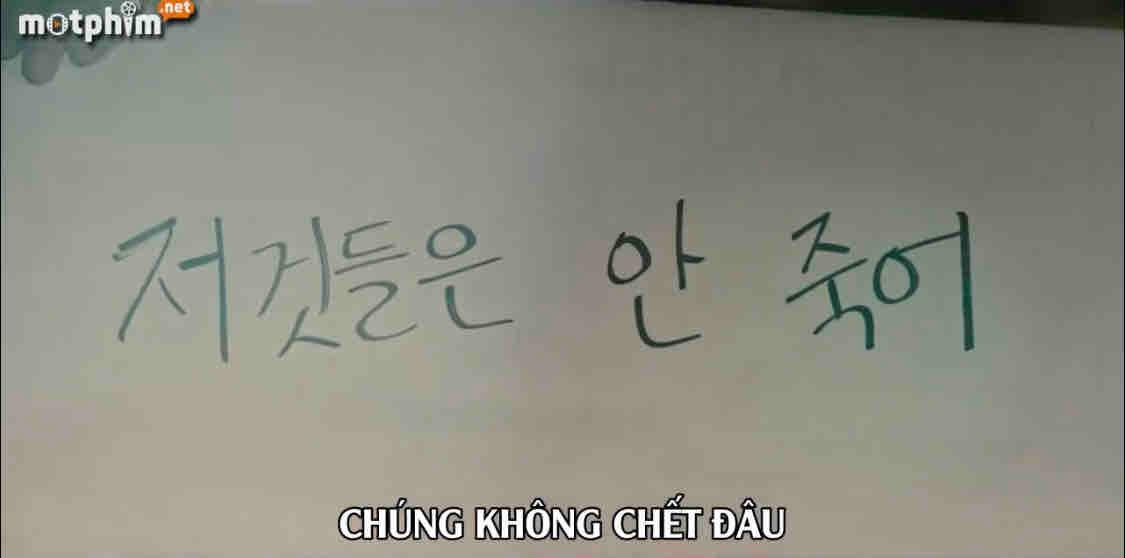 motphim.net
저것들은 안 죽어
CHÚNG KHÔNG CHẾT ĐÂU